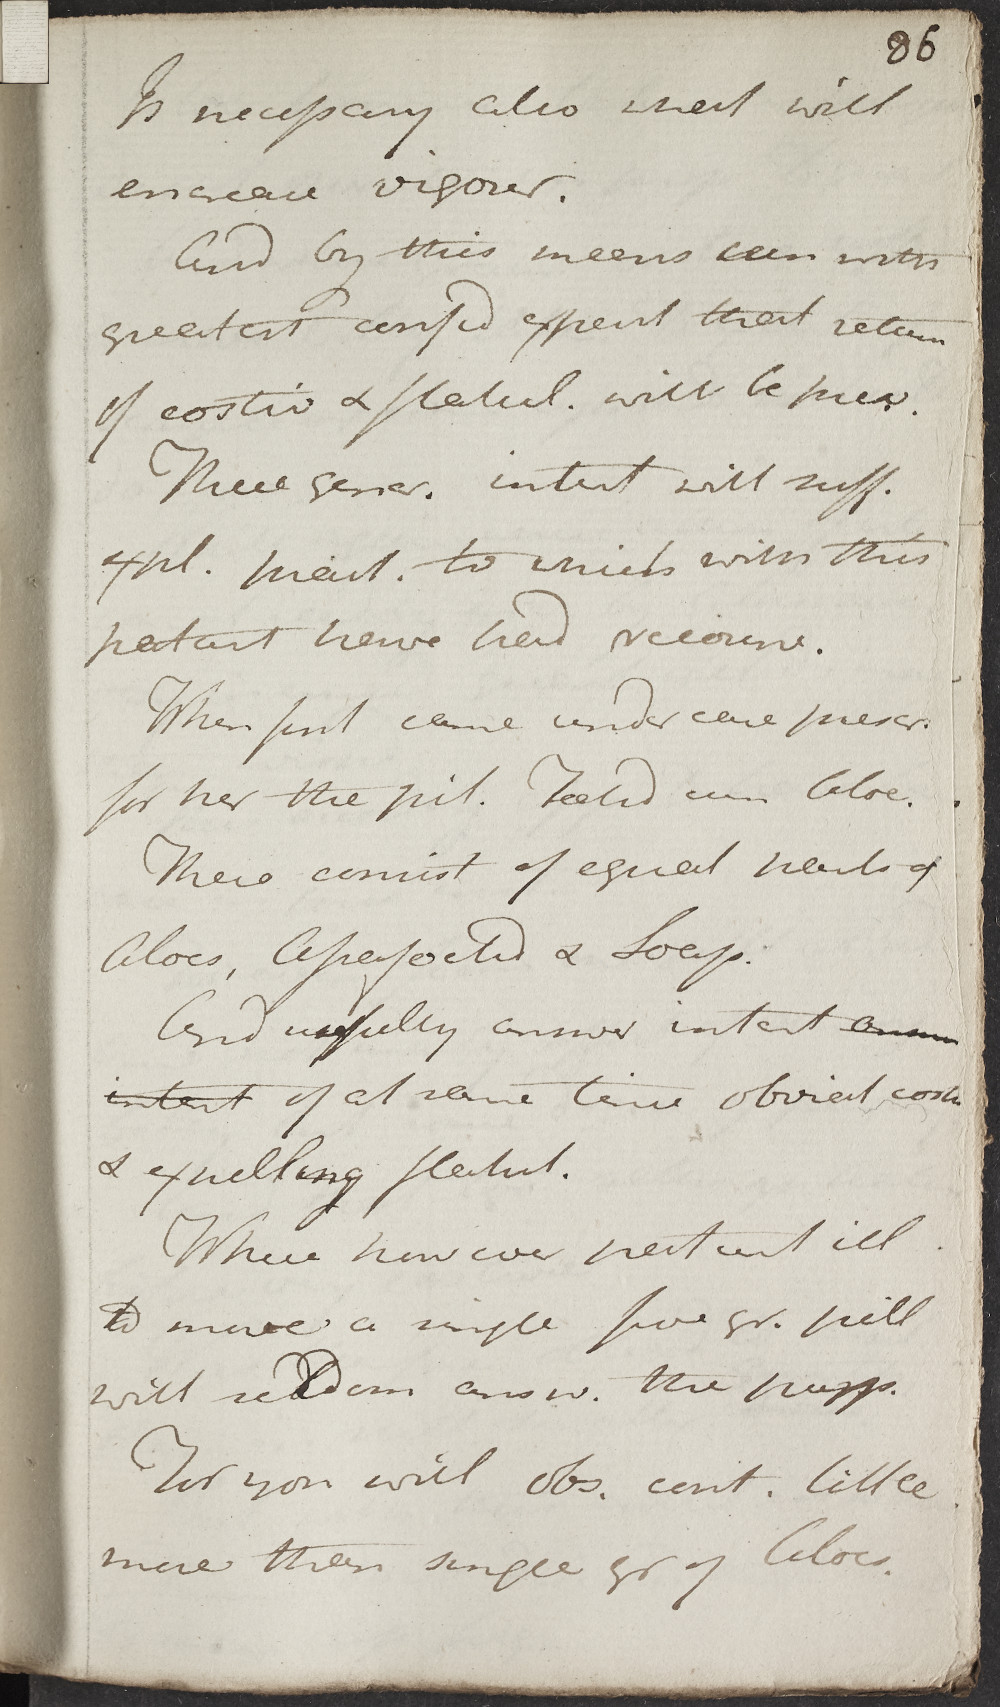 86
Is necessary also what will
encrease vigour.
And by this means can with
greatest confid expect that return
of costiv & flatul. will be prev.
These gener. intent will suff.
expl. pract. to which with this
patient have had recourse.
When first came under care prescr.
for her the pil. Foetid cum Aloe.
These consist of equal parts of
Aloes, Asafoetid & Soap.
And usefully answer intent answer
intent of at same time obviat costiv
& expelling flatul.
Where however patient ill
to move a single five gr. pill
will seldom answ. the purp.
For you will obs. cont. little
more than single gr of Aloes.